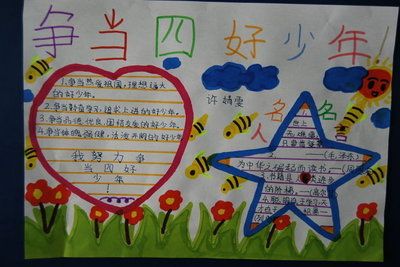 争当四好少年!
1.争当热爱祖国,理想远大
的好少年。
2.争当勤奋学习,追求上进的好少年。
3.争当品德优良,团结友爱的好少年。
4.争当体魄强健,活泼开朗的好少年。
我努力争
当四好
少年
!
许靖雯
名人
名言
1.
世上
无难事
只要肯登攀
(毛泽东)
2.
为中华之崛起而读书。
3.书籍
的阶梯。
4.聪明